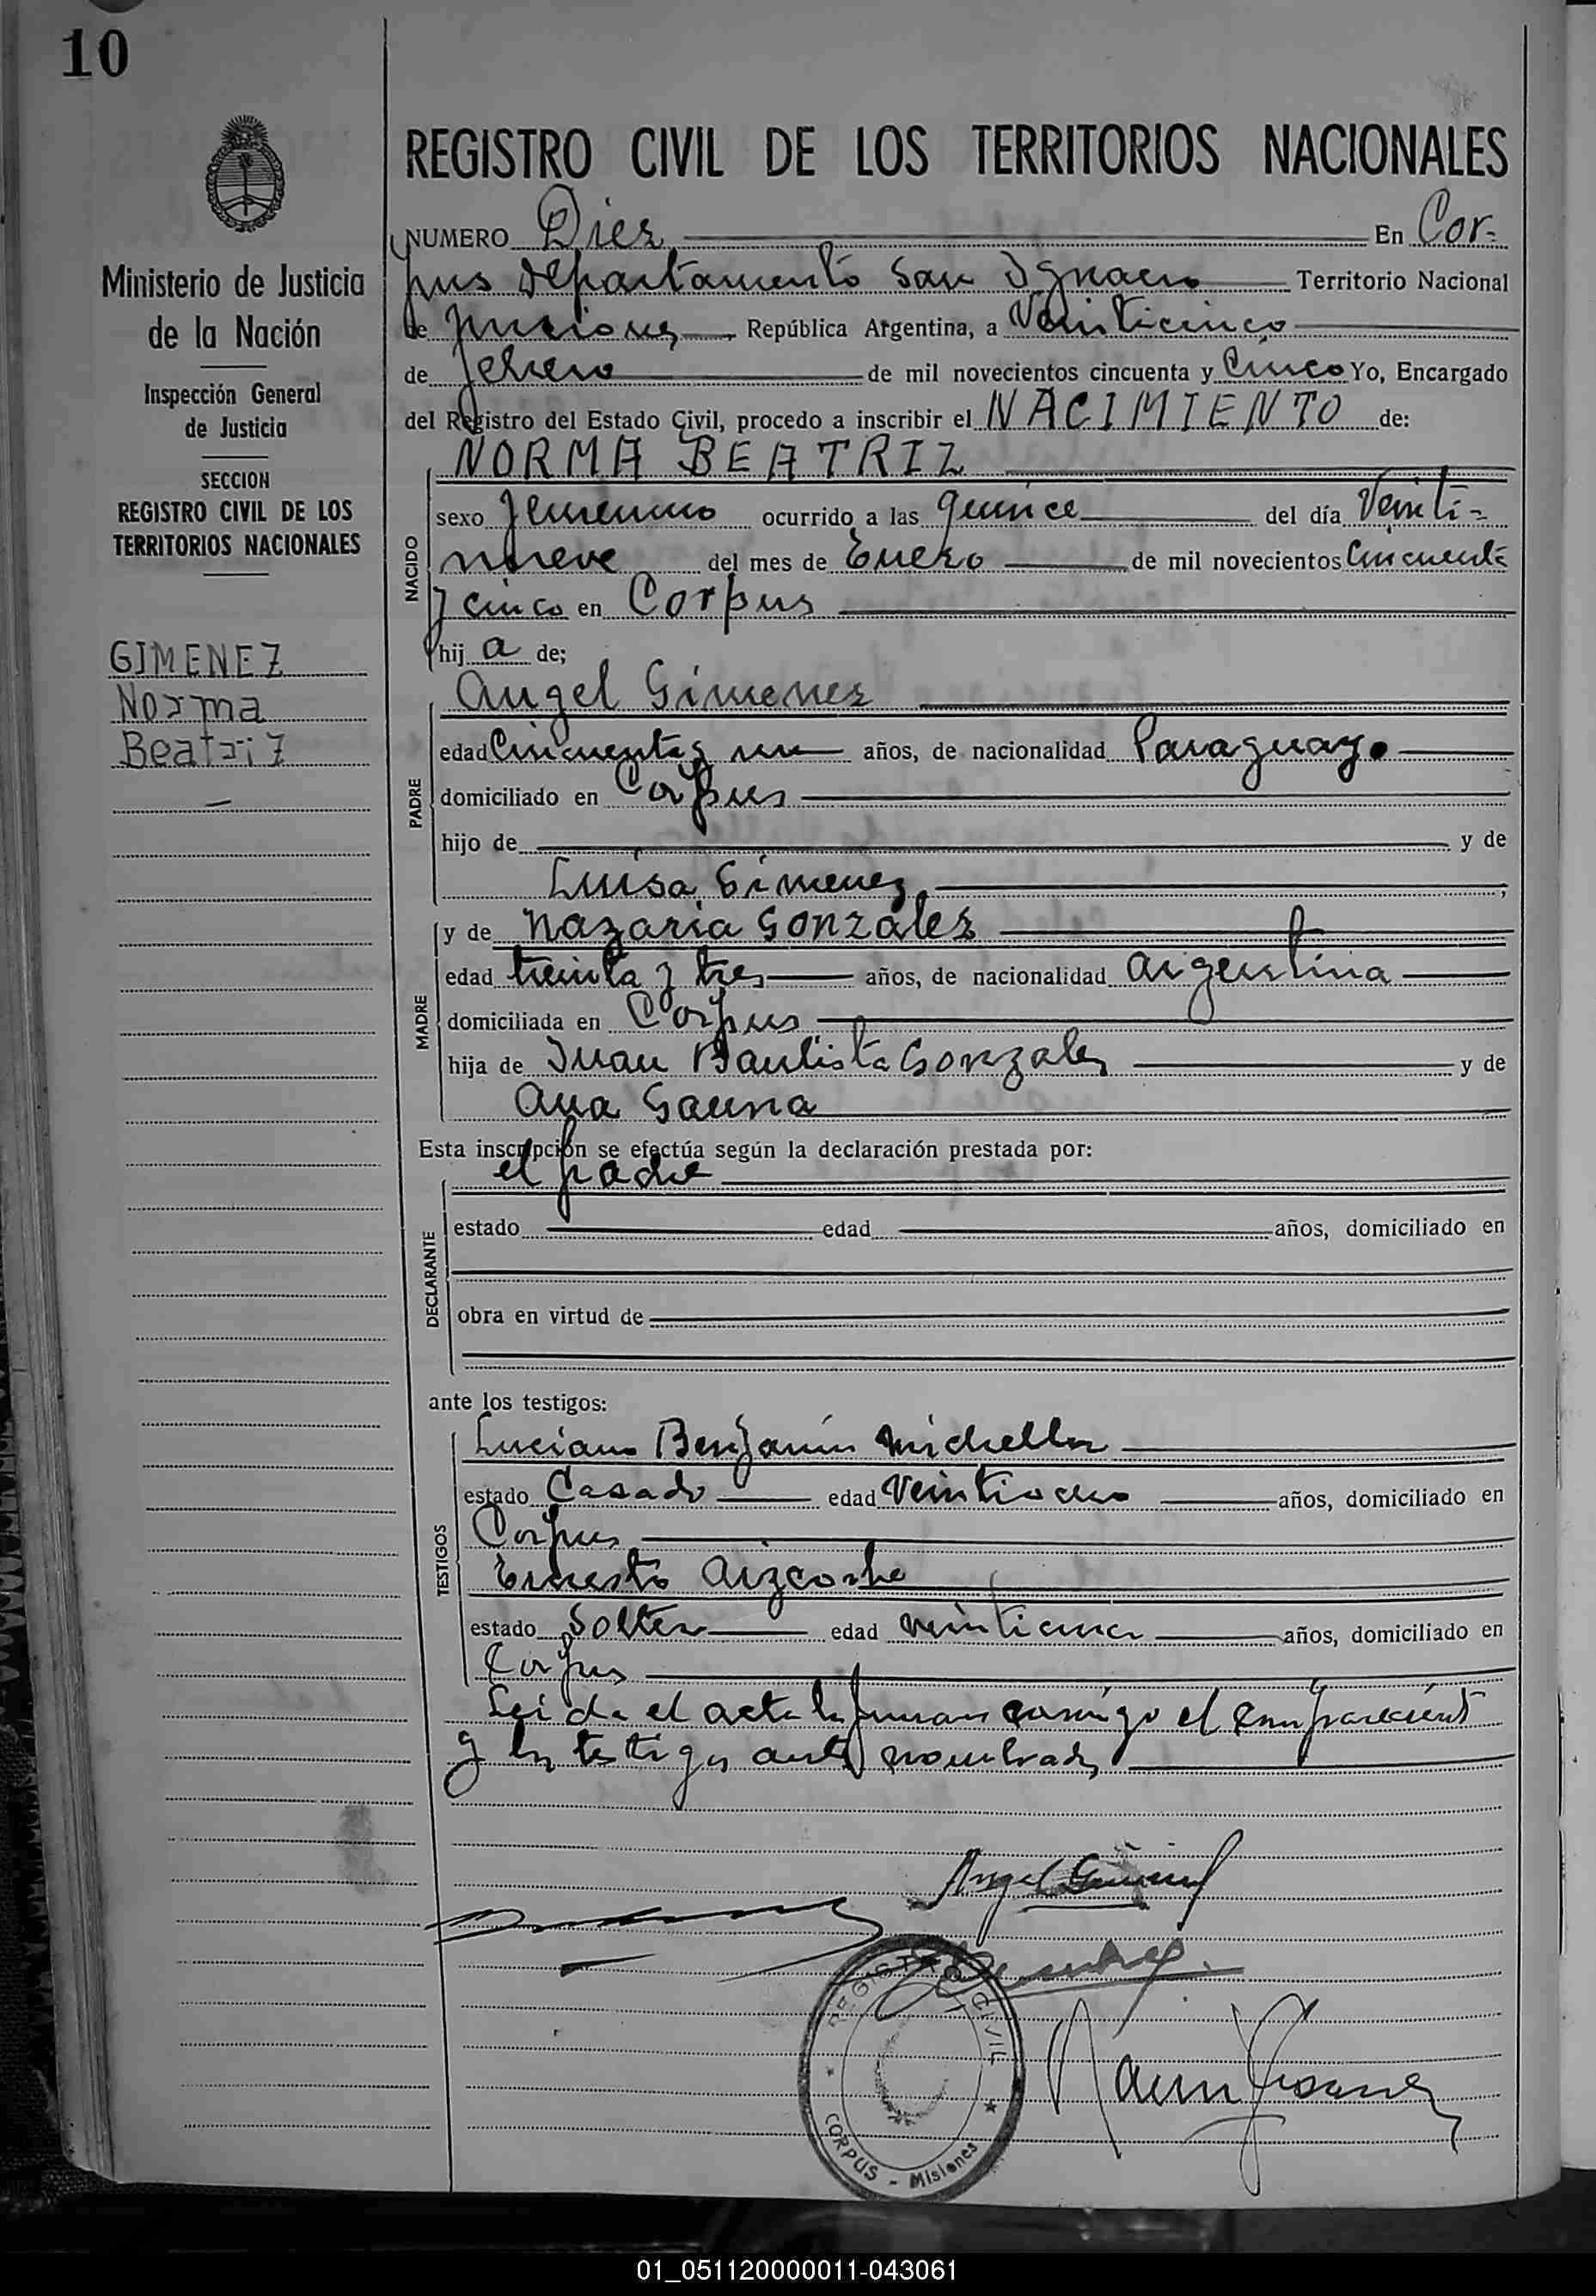 10
Ministerio de Justicia
de la Nación
Inspección General
de Justicia
SECCION
REGISTRO CIVIL DE LOS
TERRITORIOS NACIONALES
GIMENEZ
Norma
Beatriz
REGISTRO CIVIL DE LOS TERRITORIOS NACIONALES
NUMERO Diez En Cor-
pus Departamento San Ignacio Territorio Nacional
de Misiones República Argentina, a Veinticinco
de febrero de mil novecientos cincuenta y Cinco Yo, Encargado
del Registro del Estado Civil, procedo a inscribir el NACIMIENTO de:
NORMA BEATRIZ
NACIDO
sexo femenino ocurrido a las quince del día Veinti-
nueve del mes de Enero de mil novecientos Cincuenta
y cinco en Corpus
hij a de;
PADRE
Angel Gimenez
edad Cincuenta y un años, de nacionalidad Paraguayo
domiciliado en Corpus
hijo de y de
Luisa Gimenez
MADRE
y de Nazaria Gonzalez
edad treinta y tres años, de nacionalidad Argentina
domiciliada en Corpus
hija de Juan Bautista Gonzalez y de
Ana Gauna
Esta inscripción se efectúa según la declaración prestada por:
DECLARANTE
el padre
estado edad años, domiciliado en
obra en virtud de
ante los testigos:
TESTIGOS
Luciano Benjamín
estado Casado edad años, domiciliado en
Corpus
Ernesto
estado Soltero edad años, domiciliado en
Corpus
Leida el acta la firman conmigo el compareciente
y los testigos antes nombrados
Angel Gimenez
REGISTRO CIVIL
CORPUS - Misiones
01_051120000011-043061